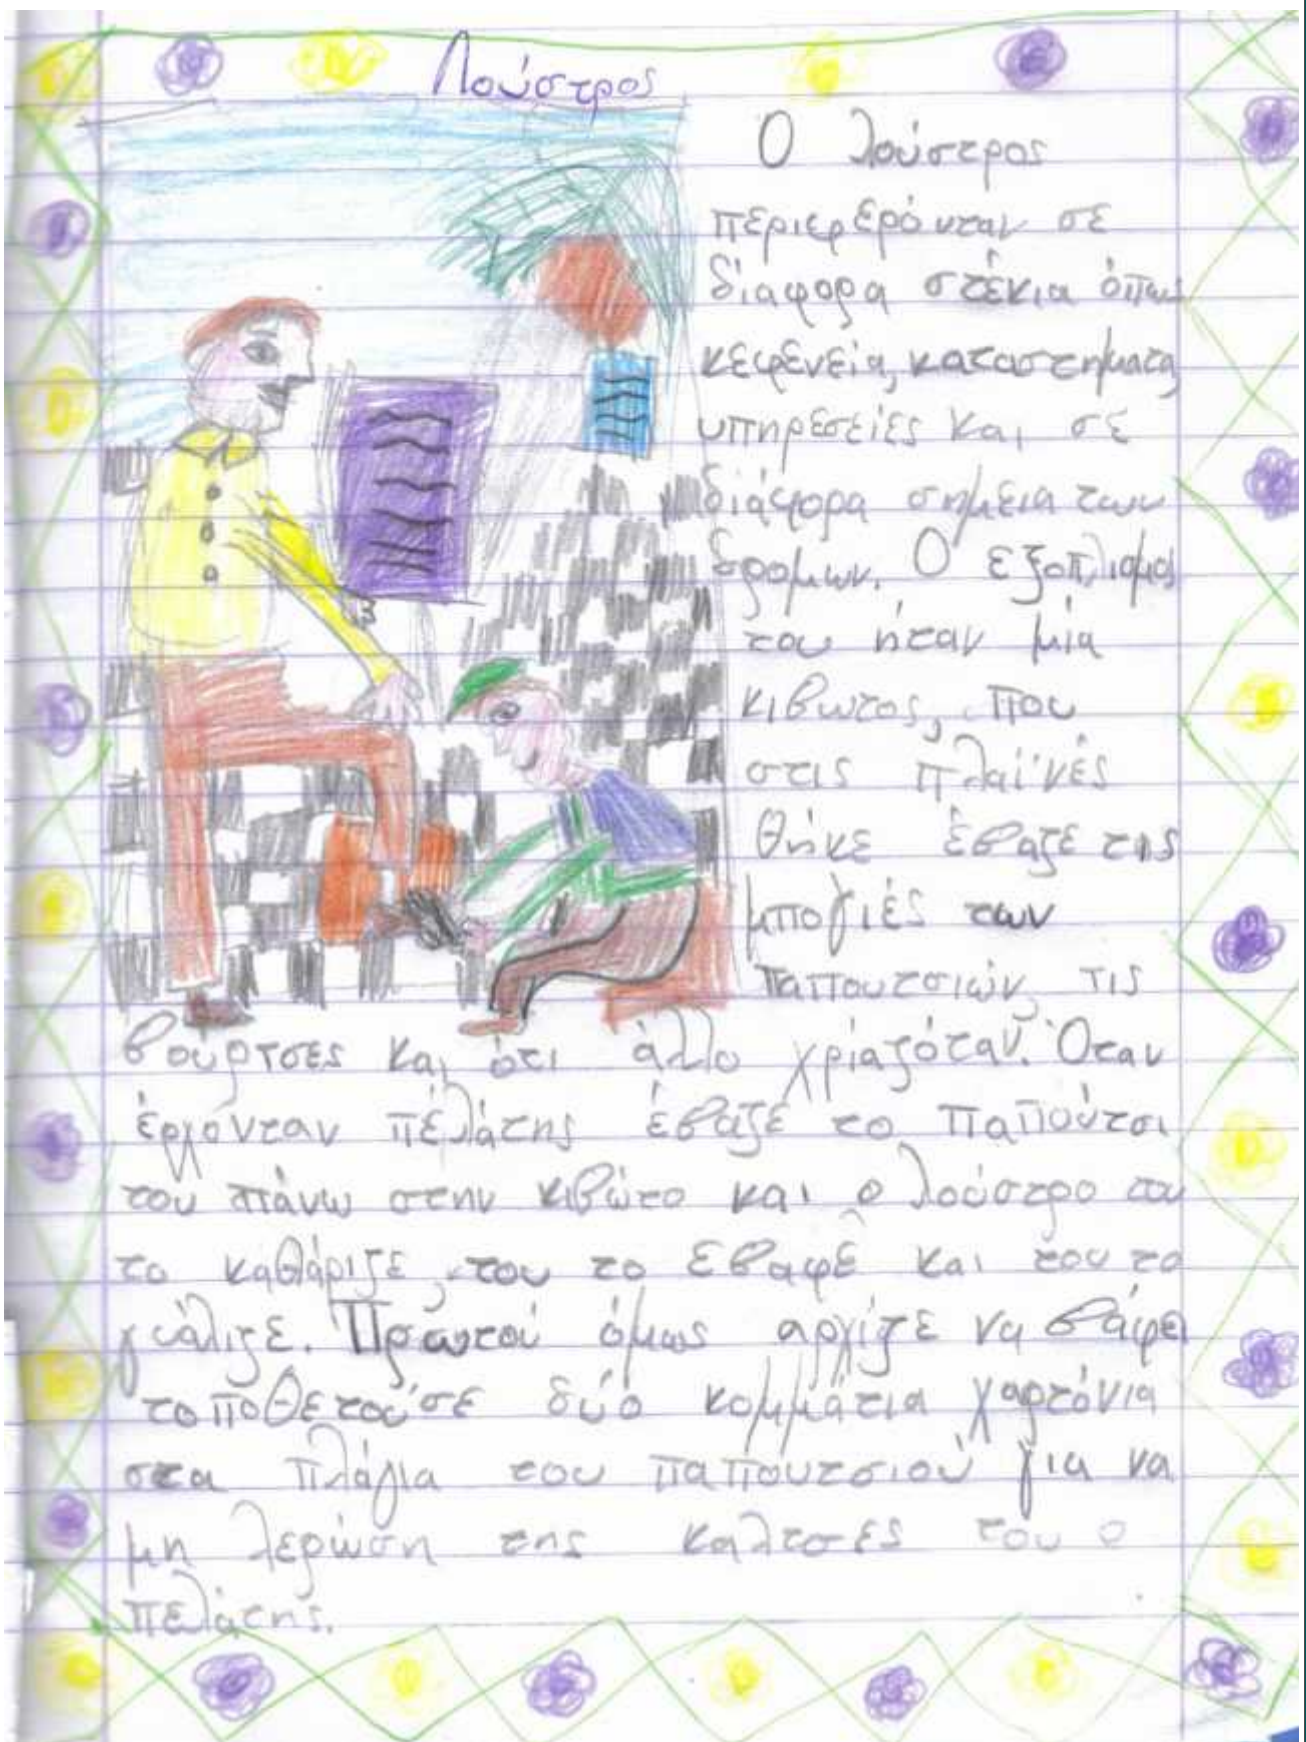 Λούστρος
Ο λούστρος
περιεφερόνταν σε
διάφορα στέκια όπως
κεφενεία, καταστήματα,
υπηρεσείες και σε
διάφορα σημεία των
δρομων. Ο εξοπλισμος
του ήταν μία
κιβωτος, που
στις πλαϊνές
θήκε έβαζε τις
μπογιές των
παπουτσιών, τις
βούρτσες και ότι άλλο χριαζόταν. Όταν
έρχόνταν πελάτης έβαζε το παπούτσι
του πάνω στην κιβώτο και ο λούστρο του
το καθάριζε, του το έβαφε και του το
γυάλιζε. Πρωτού όμως αρχίζε να βάφει
τοποθετούσε δύο κομμάτια χαρτόνια
στα πλάγια του παπουτσιού για να
μη λερώση της καλτσες του ο
πελάτης.